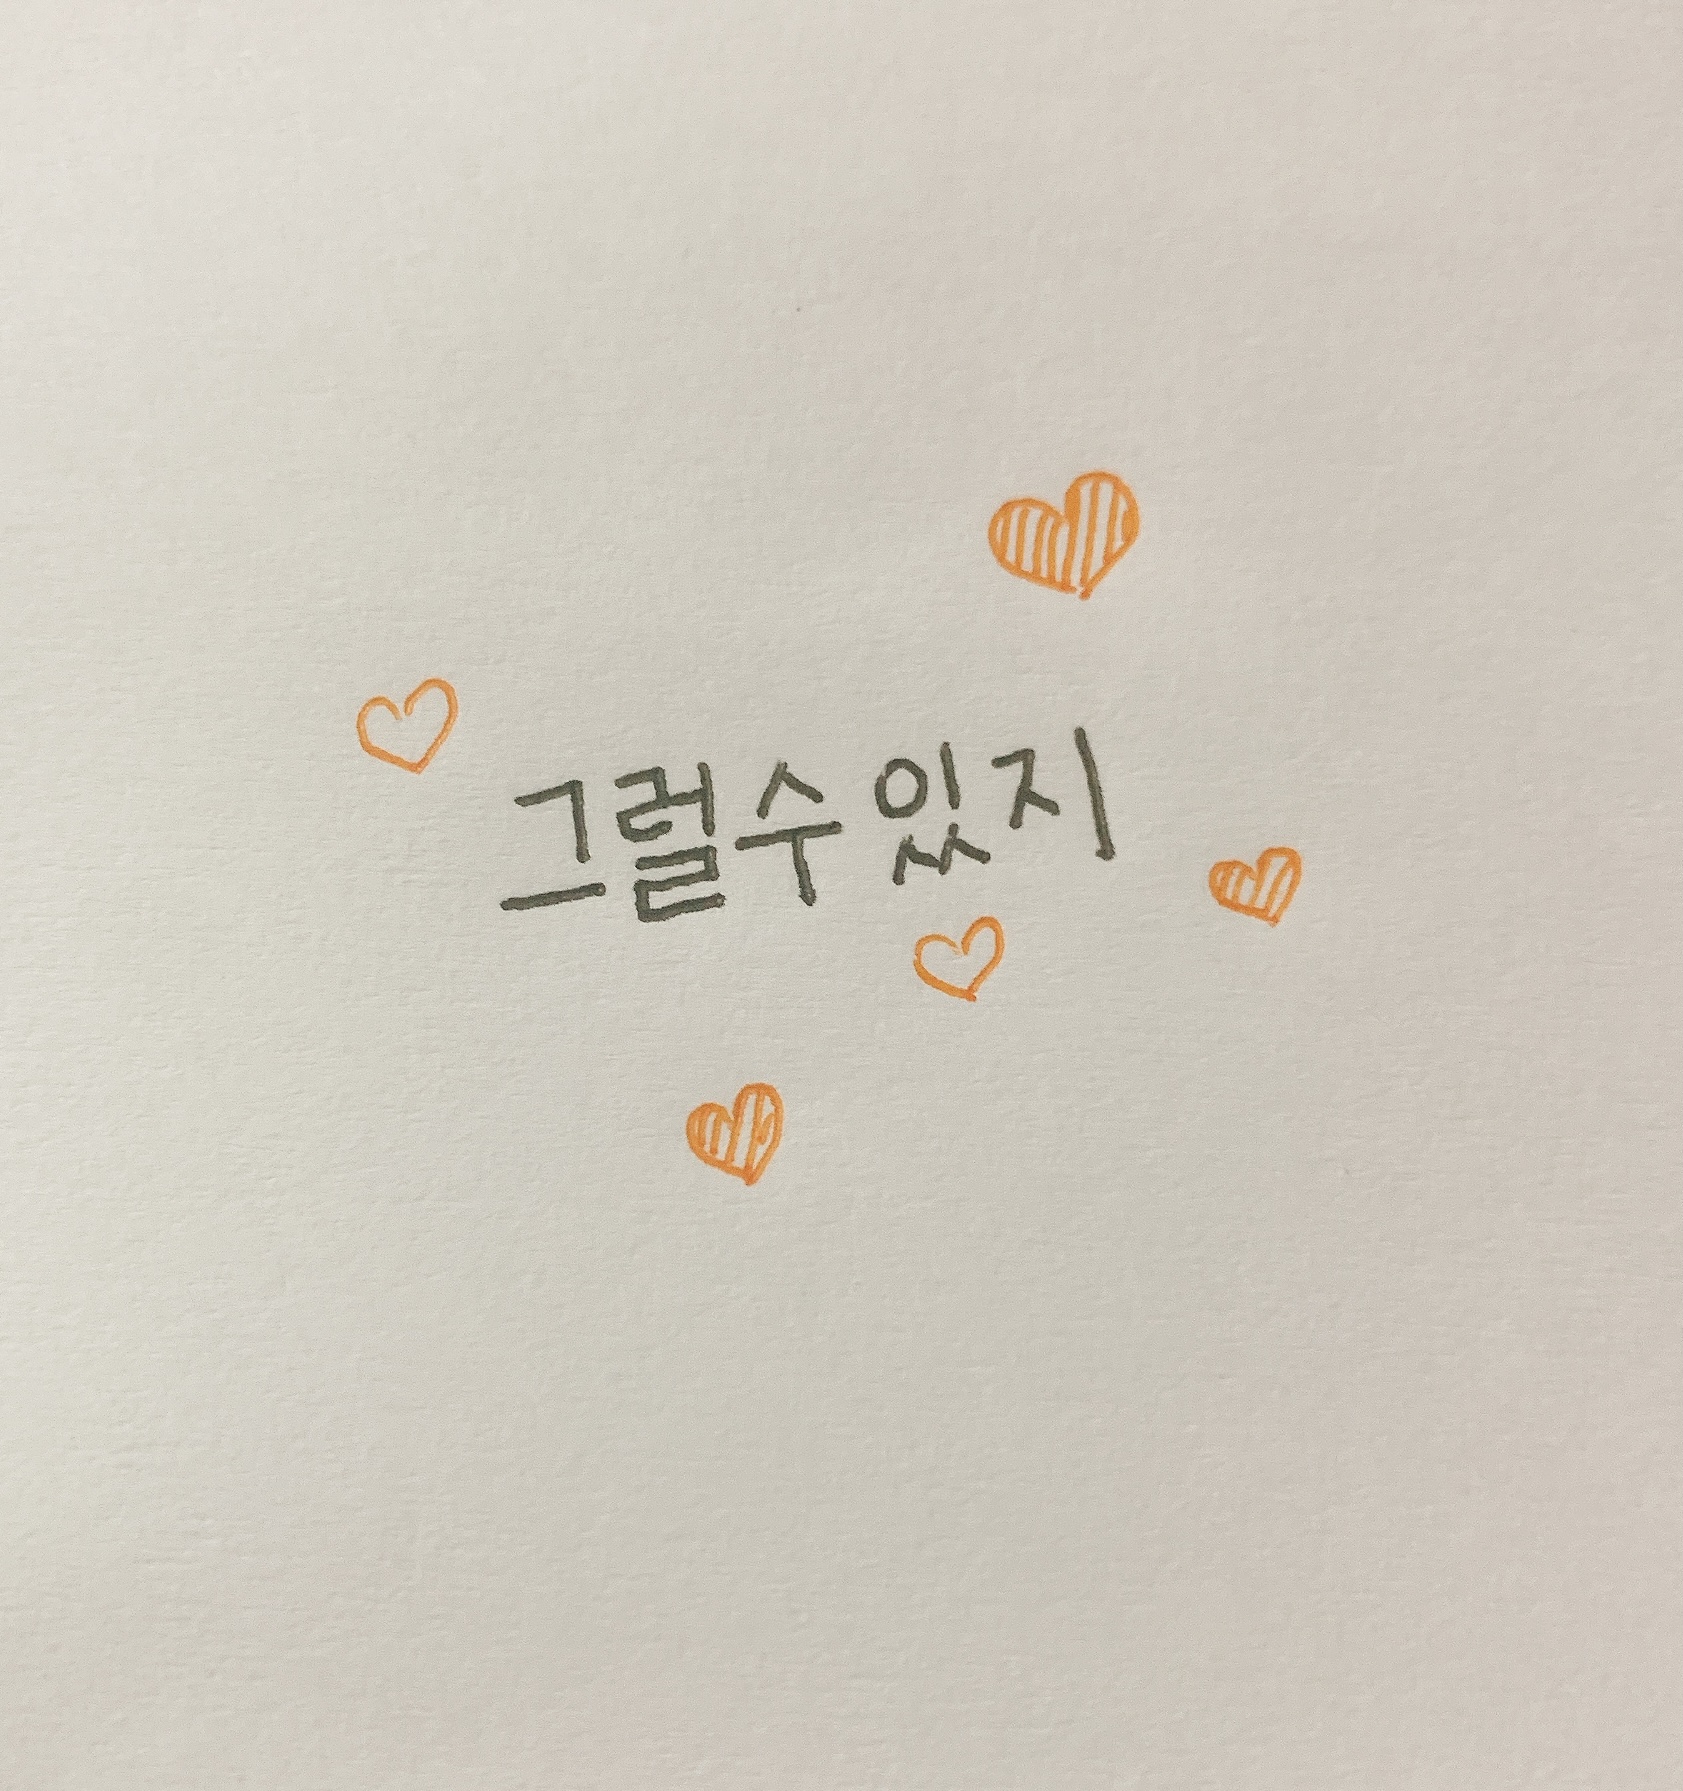 그럴수 있지